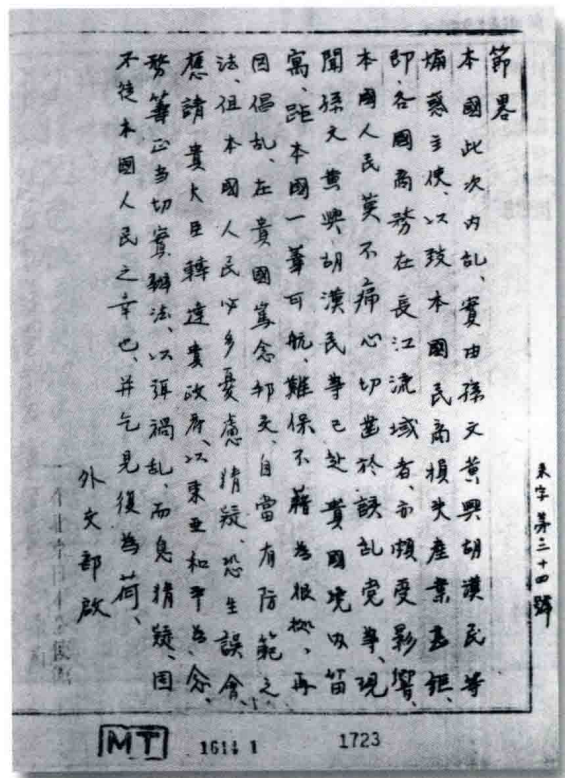 来字第三十四號
節畧
本國此次內乱、實由孫文黃興胡漢民等
煽惑主使、以致本國民商損失產業甚鉅、
即各國商務在長江流域者、亦頗受影響、
本國人民莫不痛心切齒於該乱党等、現
聞孫文黃興胡漢民等已赴貴國境內留
寓、距本國一葦可航、難保不藉為根據、再
因倡乱、在貴國篤念邦交、自當有防範之
法、但本國人民必多憂慮猜疑、恐生誤會、
應請貴大臣轉達貴政府、以東亞和平為念、
務籌正当切實辦法、以弭禍乱、而息猜疑、固
不徒本國人民之幸也、并乞見復為荷、
外交部啟
MT 1611 1 1723